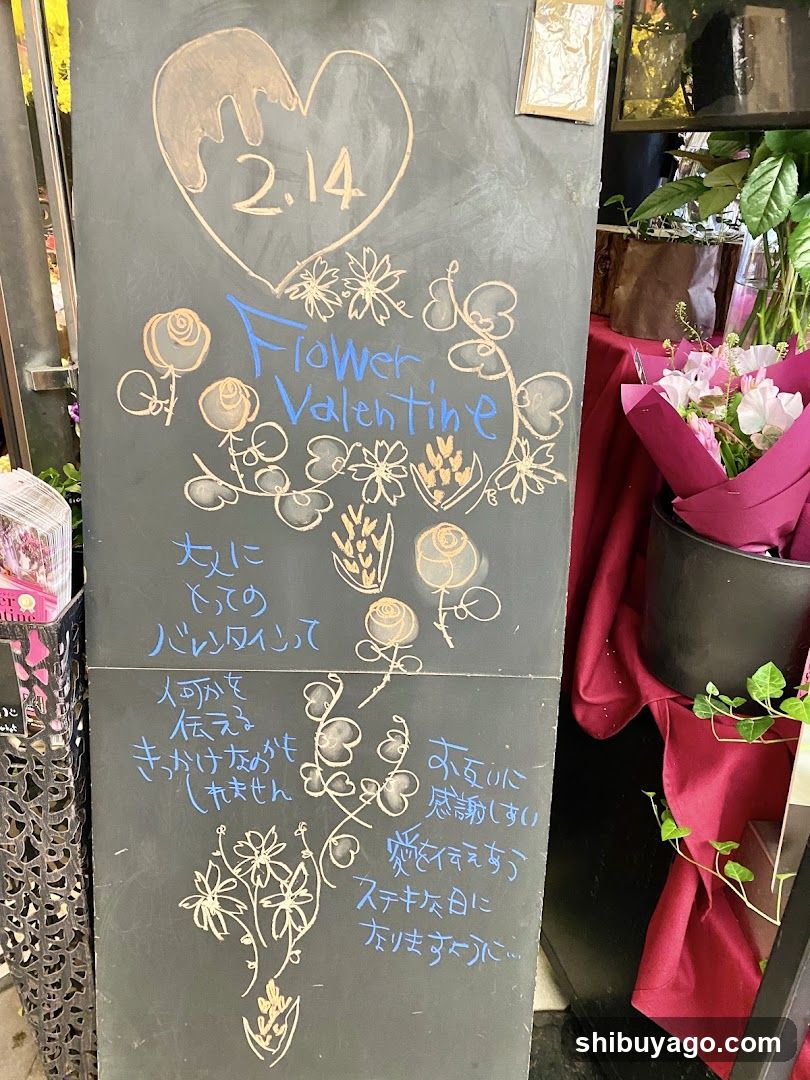 2.14
Flower
Valentine
大人に
とっての
バレンタインって
何かを
伝える
きっかけなのかも
しれません
お互いに
感謝しあい
愛を伝えあう
ステキな日に
なりますように…
shibuyago.com